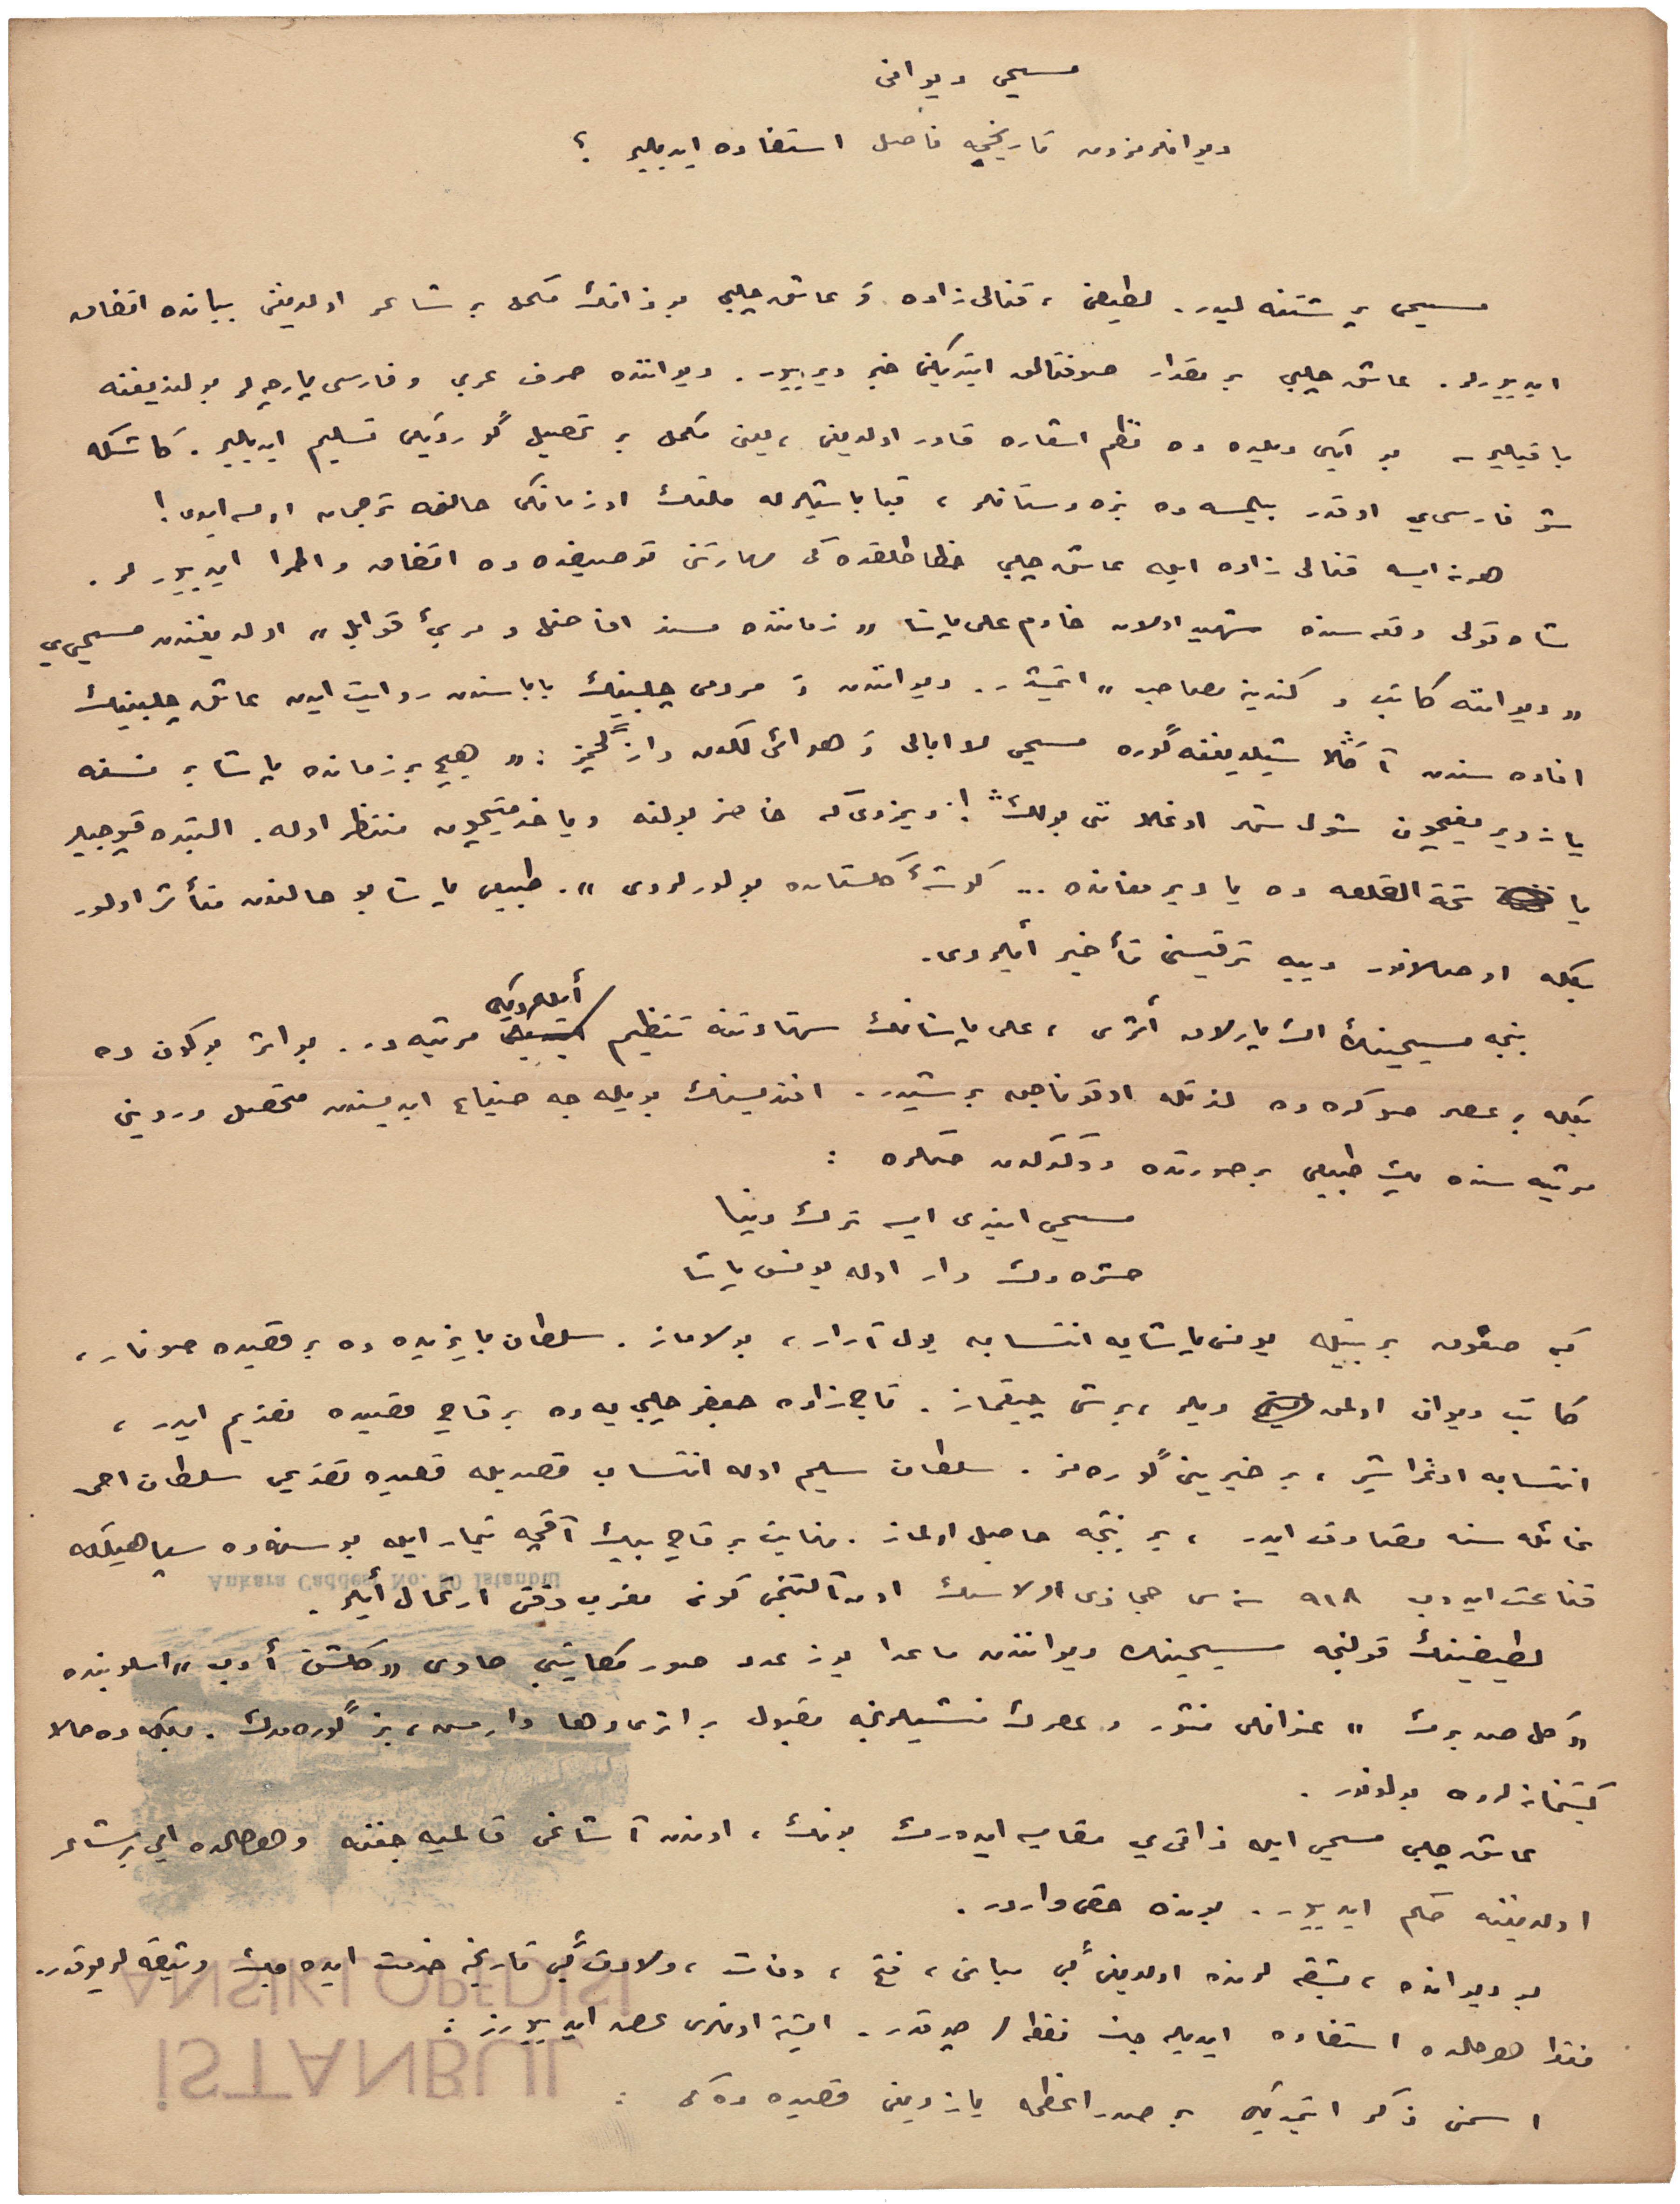 مسیحی دیوانی
دیوانلرمزدن تاریخجه ناصل استفاده ایدیلیر ؟
مسیحی پرشتنه لیدر. لطیفی ، قنالی زاده و عاشق چلبی بو ذاتك مكمل بر شاعر اولدیغنی بیانده اتفاق
ایدییورلر. عاشق چلبی بر مقدار صوفتالق ایتدیکنی خبر ویرییور. دیواننده صرف عربی و فارسی پارچه لر بولندیغنه
باقیلیرسه بو ایکی دیلده ده نظم اشعاره قادر اولدیغی ، یعنی مكمل بر تحصیل گوردیکی تسلیم ایدیلیر. کاشکه
شو فارسی‌یی اوقدر بیلمسه ده بزه دستانلر ، قبا باشقلرله ملتك اوزمانکی حالنه ترجمان اولسه ایدی !
هرنه ایسه قنالی زاده ایله عاشق چلبی خطاطلقده کی مهارتنی توصیفده ده اتفاق و اطرا ایدییورلر.
شاه قولی وقعه سنده شهید اولان خادم علی پاشا « زماننده مسند افاضل و مربیٔ قوابل » اولدیغندن مسیحی‌یی
« دیواننه کاتب و کندینه مصاحب » ایتمشدر. دیوانندن و مردمی چلبینك باباسندن روایت ایدن عاشق چلبینك
افاده سندن آکلاشیلدیغنه گوره مسیحی لاابالی و هوائی لکدن وازگچمز : « هیچ بر زمانده پاشا بر نسنه
یازدیرمغیچون شول شهر اوغلانی بولك ! دیزدی که حاضر بولنه و یا خدمتیچون منتظر اوله. البتده قپوجیلر
یا تحت القلعه ده یا دیر مغانده ... گوشهٔ گلستانده بولورلردی ». طبیعی پاشا بو حالندن متأثر اولور
بلکه اوصلانور دییه ترقیسنی تأخیر ایلردی.
بنجه مسیحینك اك پارلاق أثری ، علی پاشانك شهادتنه تنظیم أیله‌دیکی مرثیه در. بو اثر بوکون ده
بلکه بر عصر صوکره ده لذتله اوقوناجق بر شیدر. افندیسنك بویله جه ضیاع ابدیسندن متحصل دردینی
مرثیه سنده پك طبیعی بر صورتده دوکدکدن صکره :
مسیحی ایتدی ایسه ترك دنیا
حشره دك وار اوله یونس پاشا
کبی صغوق بر بیتله یونس پاشایه انتسابه یول آرار ، بولاماز. سلطان بایزیده ده بر قصیده صونار ،
کاتب دیوان اولمق دیلر ، برشی چیقماز. تاجی زاده جعفر چلبی یه ده بر قاچ قصیده تقدیم ایدر ،
انتسابه اوغراشیر ، بر خیرینی گوره مز. سلطان سلیم اوله انتساب قصدیله قصیده تقدیمی سلطان احمد
غائله سنه مصادف ایدر ، بر نتیجه حاصل اولماز. نهایت بر قاچ بیك آقچه تیمار ایله بوسنه ده سپاهیلکه
قناعت ایدوب ٩١٨ سنه سی جمادی الاولاسنك اون آلتنجی کونی مغرب وقتی ارتحال أیلر.
لطیفینك قولنجه مسیحینك دیوانندن ماعدا یوز عدد صور مکاتیبی حاوی « گلشن أدب » اسلوبنده
« گل صد برگ » عنوانلی منثور و عصرك منشیلرنجه مقبول بر اثری دها وارمش ، بز گوره مدك. بلکه ده حالا
کتبخانه لرده بولونور.
عاشق چلبی مسیحی ایله ذاتی‌یی مقایسه ایده رك بونك ، اوندن آشاغی قالمیه جغنه و هرحالده ایی بر شاعر
اولدیغنه حکم ایدییور. بونده حقی واردر.
بو دیوانده ، بشقه لرنده اولدیغی گبی مبانی ، فتح ، وفات ، ولادت گبی تاریخه خدمت ایده جك وثیقه لر یوقدر.
فقط هرحالده استفاده ایدیله جك نقطه لر چوقدر. ایشته اونلری عرض ایدییورز :
اسمنی ذکر ایتمدیکی بر صدراعظمه یازدیغی قصیده ده کی :
Ankara Caddesi No. 80 İstanbul
ANSİKLOPEDİSİ
İSTANBUL